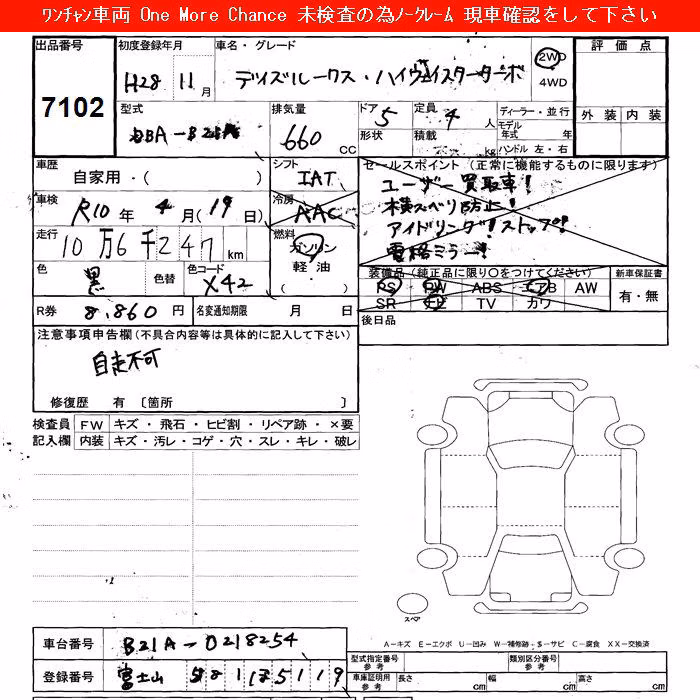 ﾜﾝﾁｬﾝ車両 One More Chance 未検査の為ﾉｰｸﾚｰﾑ 現車確認をして下さい
出品番号 7102
初度登録年月 H28 11月
車名・グレード デイズルークス・ハイウェイスターターボ
2WD 4WD
評価点
外装 内装
型式
排気量 660 CC
ドア 5 形状
定員 4 人 積載 kg
ディーラー・並行
モデル年式 年
ハンドル 左・右
車歴 自家用・( )
シフト IAT
車検 R10年 4月(19日)
冷房 AAC
走行 10万6千247 km
燃料 ガソリン 軽油・( )
色 黒 色替 色コード X42
R券 8,860円 名変通知期限 月 日
セールスポイント (正常に機能するものに限ります)
ユーザー買取車!
横スベリ防止!
アイドリングストップ!
電格ミラー!
装備品(純正品に限り○をつけてください)
PS PW ABS エアB AW
SR ナビ TV カワ
新車保証書 有・無
後日品
注意事項申告欄(不具合内容等は具体的に記入して下さい)
自走不可
修復歴 有 〔箇所 〕
検査員記入欄
FW キズ・飛石・ヒビ割・リペア跡・×要
内装 キズ・汚レ・コゲ・穴・スレ・キレ・破レ
スペア
A－キズ E－エクボ U－凹み W－補修跡・S－サビ C－腐食 XX－交換済
車台番号 B21A-0218254
登録番号 富士山 581
型式指定番号 参考
類別区分番号 参考
車庫証明用 参考 長さ cm 幅 cm 高さ cm